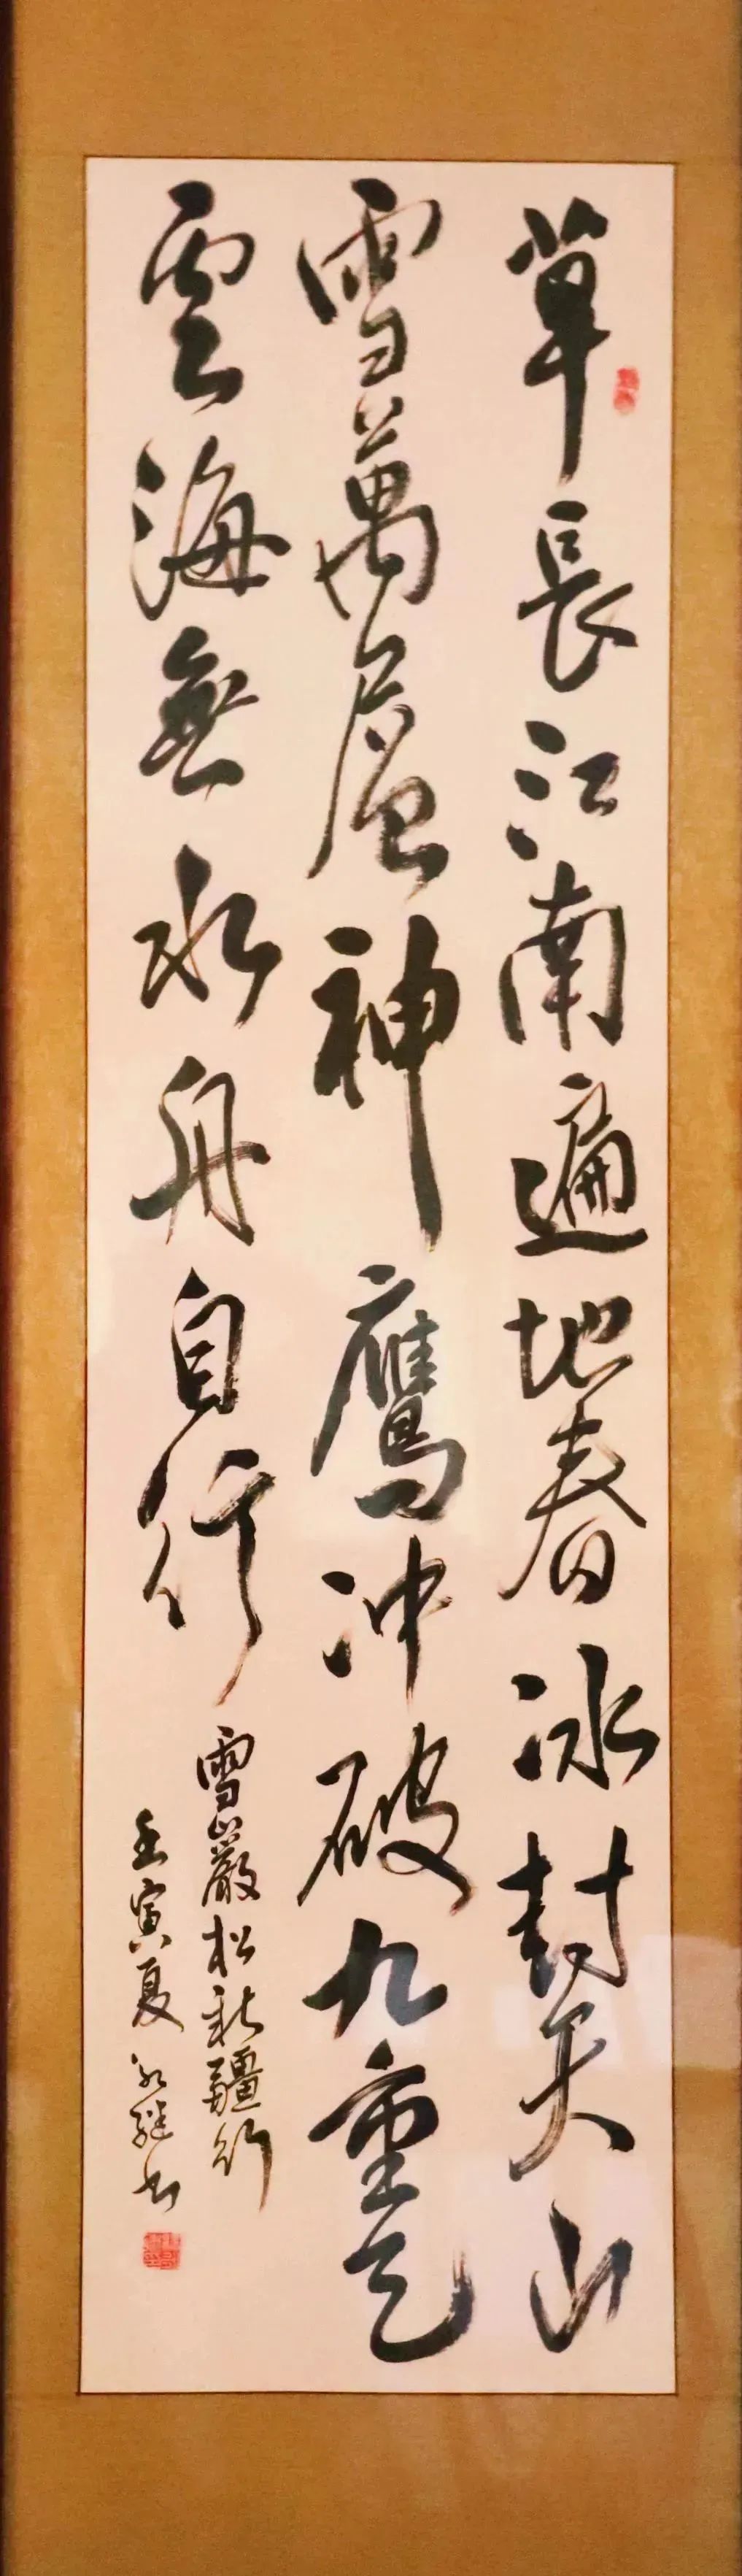 草長江南遍地春冰封天山
雪萬層神鷹冲破九重天
雲海無水舟自行
雪山巖松新疆行
壬寅夏 继书